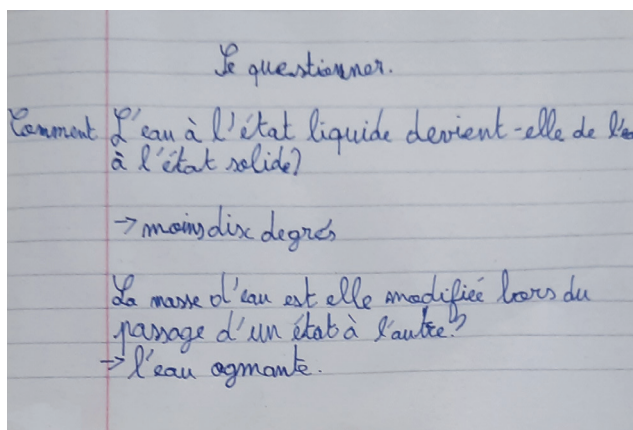 Se questionner.
Comment L'eau à l'état liquide devient-elle de l'e
à l'état solide?
→ moins dix degrés
La masse d'eau est elle modifiée lors du
passage d'un état à l'autre?
→ l'eau ogmante.